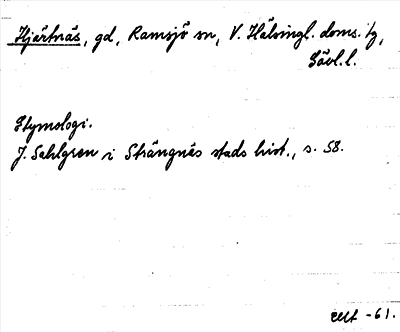 Hjärtnäs, gd, Ramsjö sn, V. Hälsingl. doms. tg,
Gävl. l.
Etymologi.
J. Sahlgren i Strängnäs stads hist., s. 58.
-61.